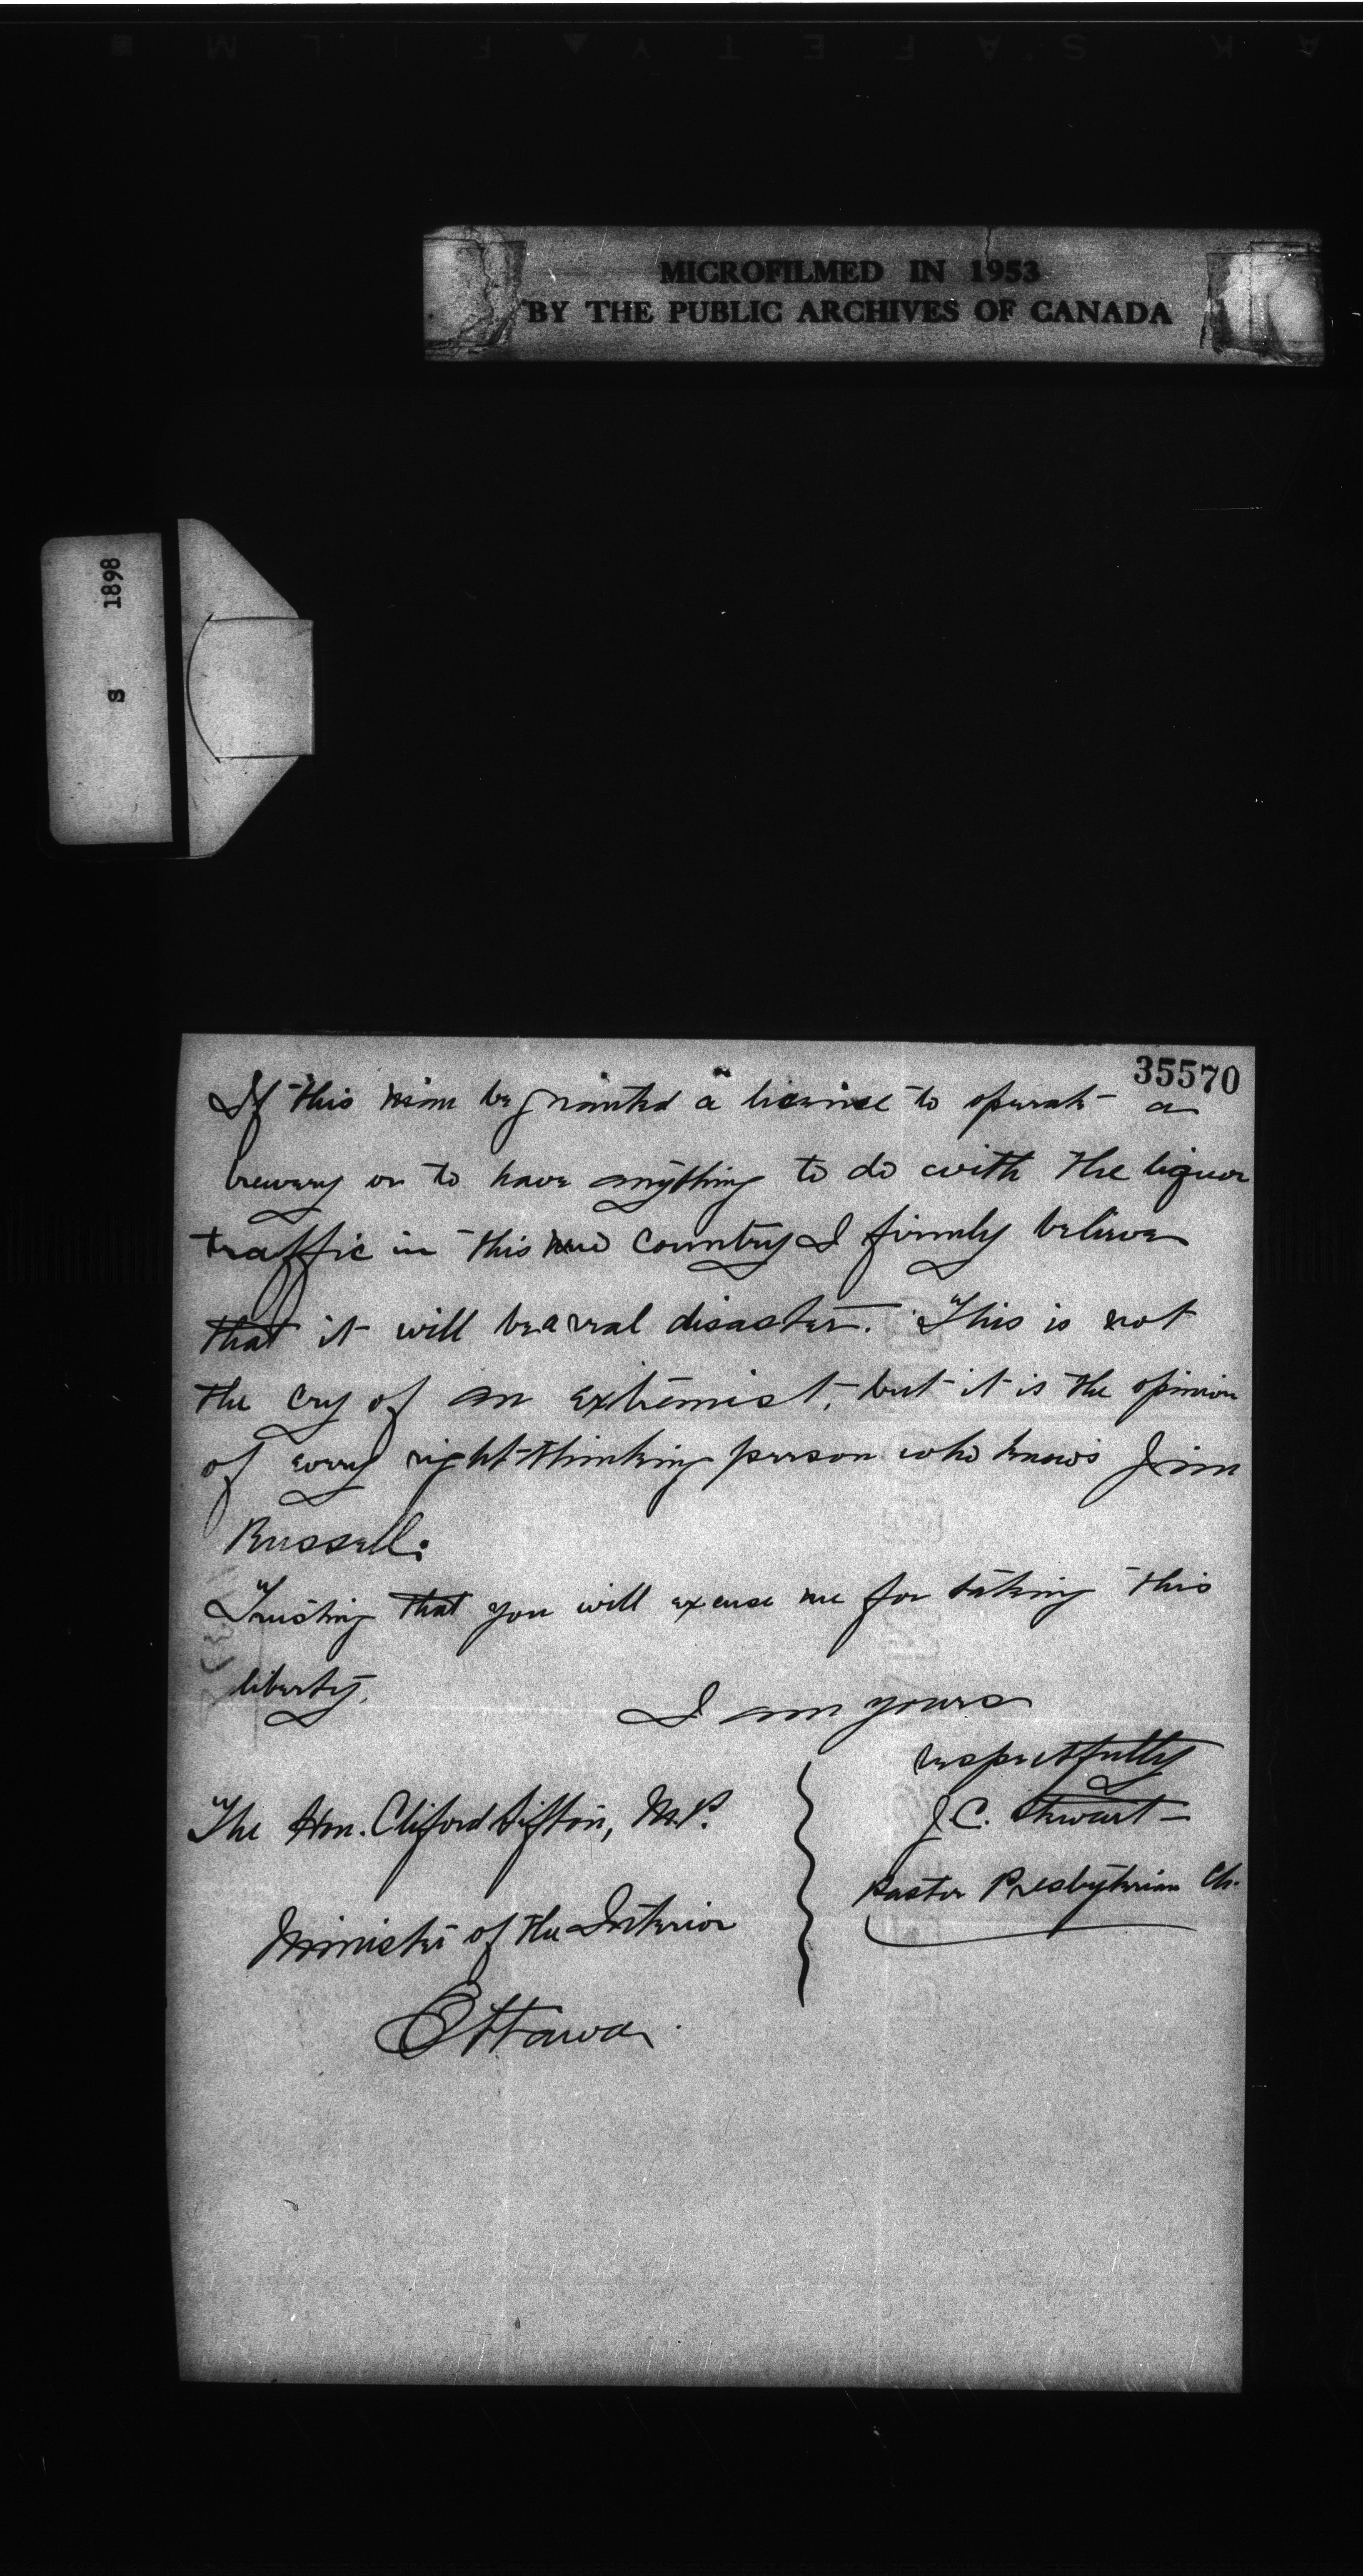 SAFETY FILM
MICROFILMED IN 1953
BY THE PUBLIC ARCHIVES OF CANADA
S 1898
35570
If this man be granted a license to operate a
brewery or to have anything to do with the liquor
traffic in this new country I firmly believe
that it will be a real disaster. This is not
the cry of an extremist, but it is the opinion
of every right-thinking person who knows Jim
Russell.
Trusting that you will excuse me for taking this
liberty,
I am yours
respectfully
J. C. Stewart
Pastor Presbyterian Ch.
The Hon. Cliford Sifton, M.P.
Minister of the Interior
Ottawa.